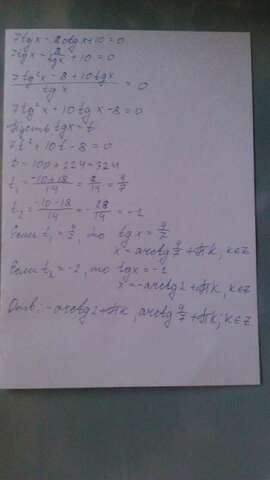 7tgx - 8ctgx + 10 = 0
7tgx - 8/tgx + 10 = 0
7tg²x - 8 + 10tgx / tgx = 0
7tg²x + 10tgx - 8 = 0
Пусть tgx = t
7t² + 10t - 8 = 0
D = 100 + 224 = 324
t₁ = -10+18/14 = 8/14 = 4/7
t₂ = -10-18/14 = -28/14 = -2
Если t₁ = 4/7, то tgx = 4/7
x = arctg 4/7 + πk, k∈Z
Если t₂ = -2, то tgx = -2
x = -arctg2 + πk, k∈Z
Отв: -arctg2 + πk, arctg 4/7 + πk; k∈Z